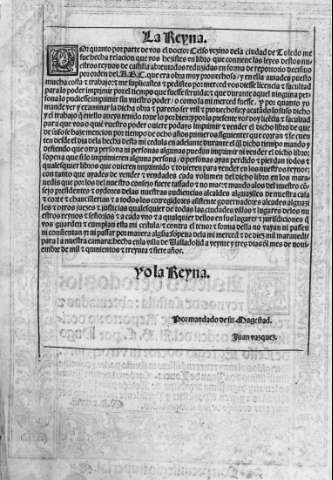 La Reyna.
Por quanto por parte de vos el doctor Celso vezino dela ciudad de Toledo me
fue hecha relacion que vos hezistes vn libro que contiene las leyes destos nu
estros reynos de castilla abreuiadas reduzidas en forma de repertorio decisiuo
por orden del A.B.C. que era obra muy prouechosa: y en ella auiades puesto
mucha costa y trabajo: z me suplicastes z pedistes por merced vos diesse licencia z facultad
para lo poder imprimir por el tiempo que fuesse seruida: z que durante aquel ninguna per
sona lo pudiesse imprimir sin vuestro poder: o como la mi merced fuesse. E yo por quanto yo
mande ver y examinar la dicha obra z parecio ser vtil z prouechosa: y acatando lo suso dicho
y el trabajo que en ello aueys tenido toue lo por bien: y por la presente vos doy licencia z facultad
para que vos o quien vuestro poder ouiere podays imprimir z vender el dicho libro de que
de suso se haze mencion por tiempo de ocho años primeros siguientes que corran z se cuen
ten desde el dia dela hecha desta mi cedula en adelante durante el qual dicho tiempo mando y
defiendo que otra persona ni personas algunas puedan imprimir ni vender el dicho libro:
so pena que si lo imprimieren alguna persona: o personas ayan perdido z pierdan todos z
qualesquier libros que ouieren imprimido z touieren para vender en los nuestros reynos:
con tanto que ayades de vender z vendades cada volumen del dicho libro en los mara
uedis que por los del nuestro consejo fuere tassado z no mas: z mando alos del nuestro con
sejo presidentes z oydores delas nuestras audiencias alcaldes alguaziles de nuestra casa
z corte z chancillerias z a todos los corregidores assistente gouernadores alcaldes alguazi
les z otros juezes z justicias qualesquier de todas las ciudades villas z lugares delos nu
estros reynos z señorios z a cada vno z a qualquier dellos en sus lugares z jurisdiciones que
vos guarden z cumplan esta mi cedula: z contra el tenor z forma della no vayan ni passen
ni consientan yr ni passar por manera alguna so pena dela mi merced z de diez mil marauedis
para la nuestra camara. hecha en la villa de Ualladolid a veynte y tres dias del mes de noui
embre de mil z quinientos z treynta z siete años.
yo la Reyna.
Por mandado de su Magestad.
Juan vazquez.